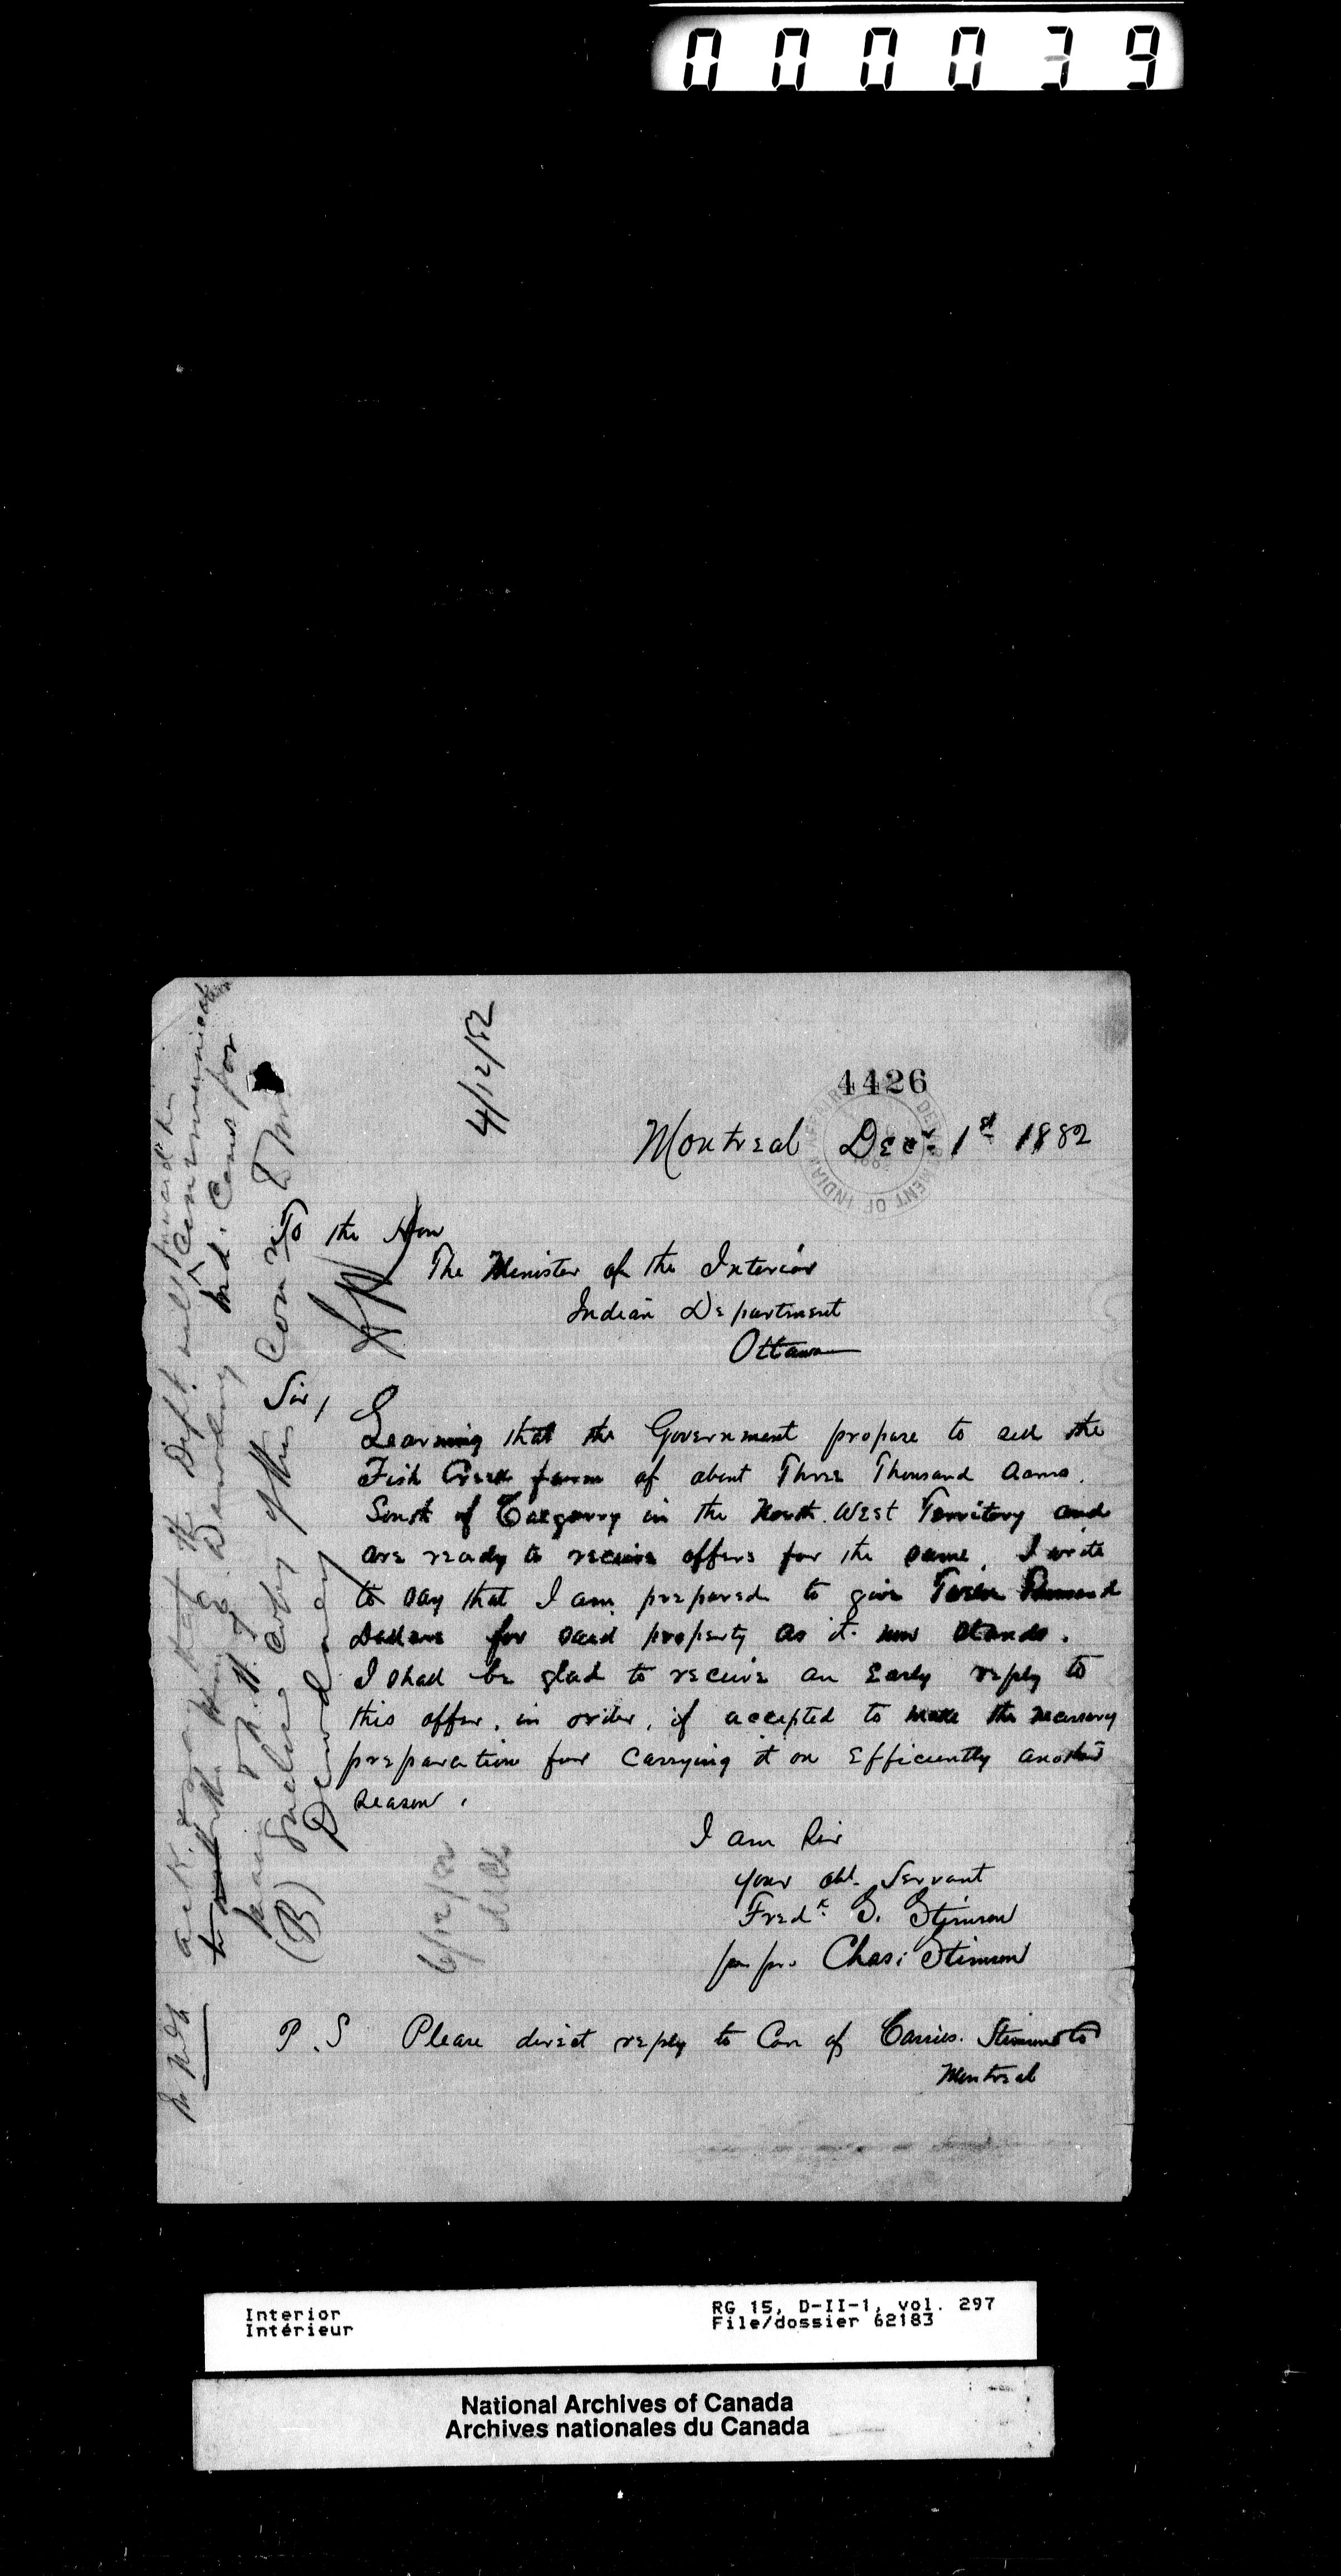 000039
4426
DEPARTMENT OF INDIAN AFFAIRS
4/12/82
Montreal Decr. 1st 1882
To the Hon
The Minister of the Interior
Indian Department
Ottawa
Sir,
Learning that the Government propose to sell the
Fish Creek farm of about Three Thousand acres.
South of Calgarry in the North West Territory and
are ready to receive offers for the same, I write
to say that I am prepared to give Twelve Thousand
Dollars for said property as it now stands.
I shall be glad to receive an Early reply to
this offer, in order, if accepted to make the necessary
preparation for Carrying it on Efficiently another
season.
I am Sir
your obt. Servant
Fredk. S. Stimson
per pro. Chas. Stimson
P.S Please direct reply to Care of Stimson
Montreal
ack. & say that the Dept. will forward his
communication
to the Hon. E. Dewdney Ind. Coms for
Enclose copy of this Com
Dewdney
(B)
6/12/82
Interior
Intérieur
RG 15, D-II-1, vol. 297
File/dossier 62183
National Archives of Canada
Archives nationales du Canada